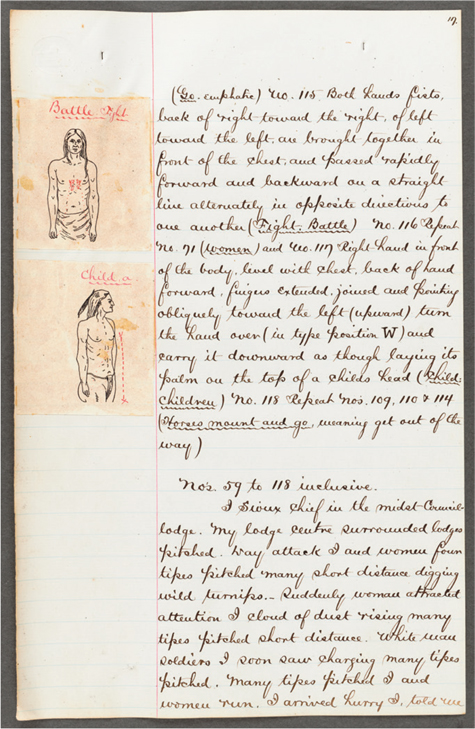 19.
Battle, fight
Child, a.
(Go. emphatic) No. 115 Both hands fists,
back of right toward the right, of left
toward the left, are brought together in
front of the chest, and passed rapidly
forward and backward on a straight
line alternately in opposite directions to
one another (Fight, Battle) No. 116 Repeat
No. 71 (Women) and No. 117 Right hand in front
of the body, level with chest, back of hand
forward, fingers extended, joined and pointing
obliquely toward the left (upward) turn
the hand over (in type position W) and
carry it downward as though laying its
palm on the top of a childs head (Child
Children) No. 118 Repeat Nos. 109, 110 & 114
(Horses mount and go, meaning get out of the
way)
Nos. 59 to 118 inclusive.
I Sioux chief in the midst Council-
lodge. My lodge centre surrounded lodges
pitched. Day attack I and women four
tipes pitched many short distance digging
wild turnips.- Suddenly woman attracted
attention I cloud of dust rising many
tipes pitched short distance. White man
soldiers I soon saw charging many tipes
pitched. Many tipes pitched I and
women run. I arrived hurry I, told me